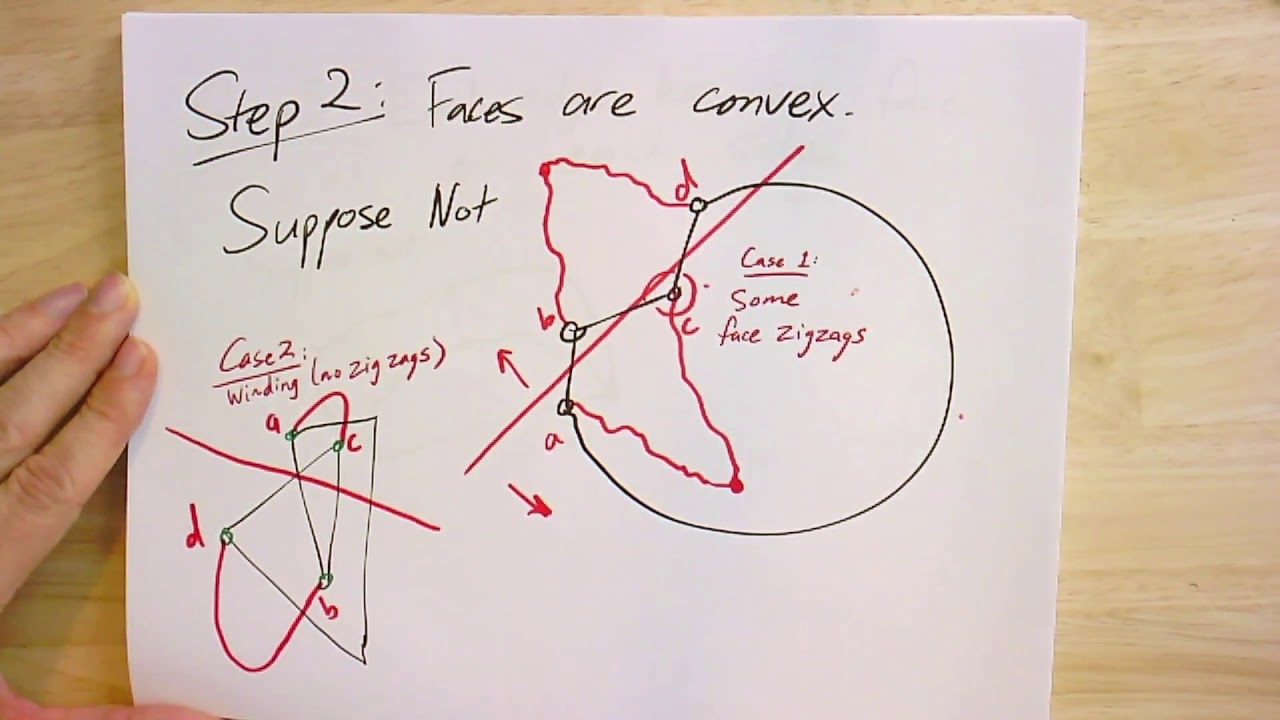 Step 2: Faces are convex.
Suppose Not
d
Case 1:
Some
face zigzags
b
c
a
Case 2:
Winding (no zig zags)
a
c
d
b